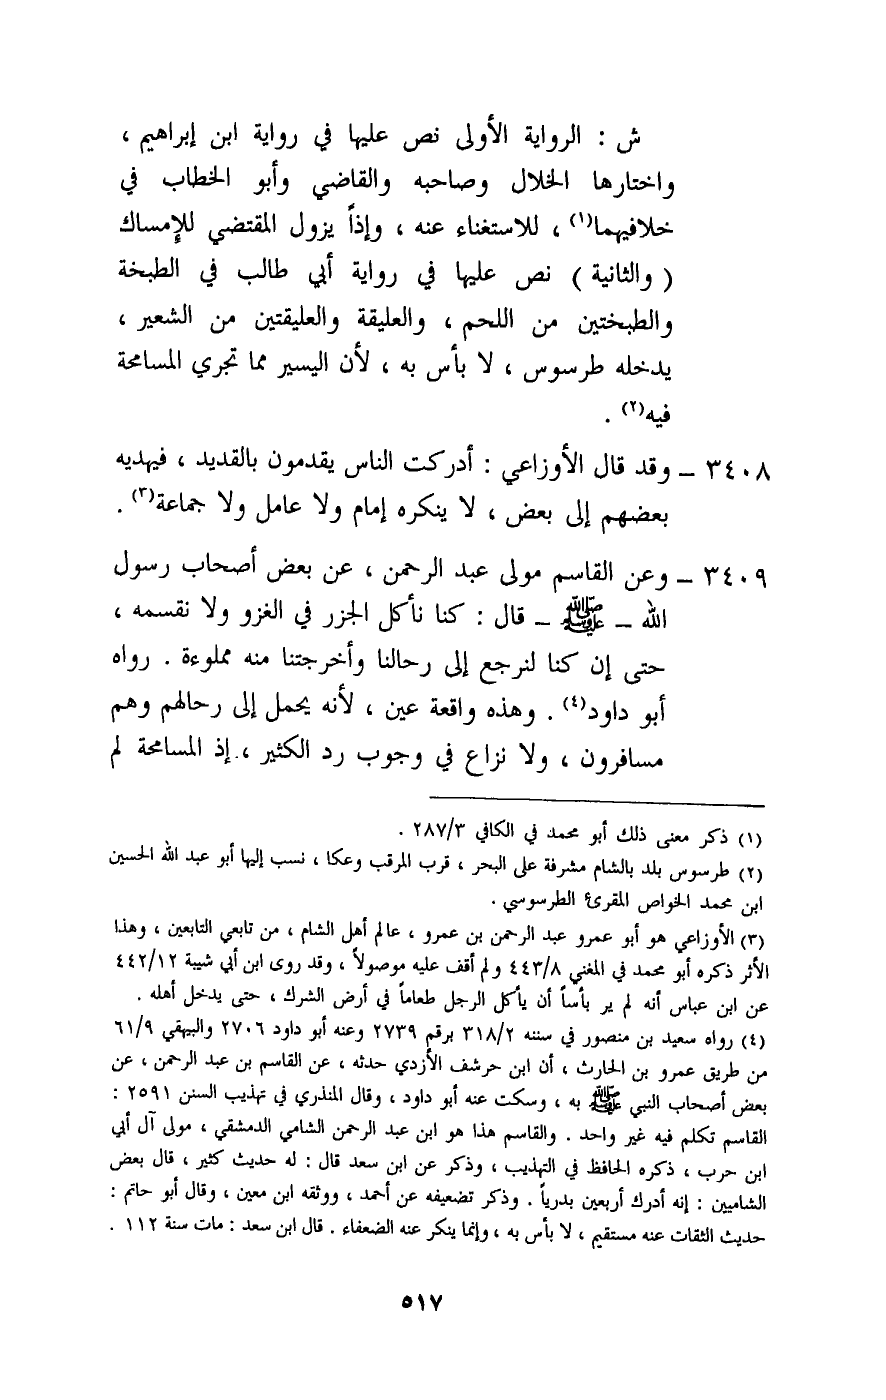 ش : الرواية الأولى نص عليها في رواية ابن إبراهيم ،
واختارها الخلال وصاحبه والقاضي وأبو الخطاب في
خلافيهما(١) ، للاستغناء عنه ، وإذاً يزول المقتضي للإمساك
( والثانية ) نص عليها في رواية أبي طالب في الطبخة
والطبختين من اللحم ، والعليقة والعليقتين من الشعير ،
يدخله طرسوس ، لا بأس به ، لأن اليسير مما تجري المسامحة
فيه(٢) .
٣٤٠٨ – وقد قال الأوزاعي : أدركت الناس يقدمون بالقديد ، فيهديه
بعضهم إلى بعض ، لا ينكره إمام ولا عامل ولا جماعة(٣) .
٣٤٠٩ – وعن القاسم مولى عبد الرحمن ، عن بعض أصحاب رسول
الله – ﷺ – قال : كنا نأكل الجزر في الغزو ولا نقسمه ،
حتى إن كنا لنرجع إلى رحالنا وأخرجتنا منه مملوءة . رواه
أبو داود(٤) . وهذه واقعة عين ، لأنه يحمل إلى رحالهم وهم
مسافرون ، ولا نزاع في وجوب رد الكثير ، إذ المسامحة لم
(١) ذكر معنى ذلك أبو محمد في الكافي ٢٨٧/٣ .
(٢) طرسوس بلد بالشام مشرفة على البحر ، قرب المرقب وعكا ، نسب إليها أبو عبد الله الحسين
ابن محمد الخواص المقرئ الطرسوسي .
(٣) الأوزاعي هو أبو عمرو عبد الرحمن بن عمرو ، عالم أهل الشام ، من تابعي التابعين ، وهذا
الأثر ذكره أبو محمد في المغني ٤٤٣/٨ ولم أقف عليه موصولاً ، وقد روى ابن أبي شيبة ٤٤٢/١٢
عن ابن عباس أنه لم ير بأساً أن يأكل الرجل طعاماً في أرض الشرك ، حتى يدخل أهله .
(٤) رواه سعيد بن منصور في سننه ٣١٨/٢ برقم ٢٧٣٩ وعنه أبو داود ٢٧٠٦ والبيهقي ٦١/٩
من طريق عمرو بن الحارث ، أن ابن حرشف الأزدي حدثه ، عن القاسم بن عبد الرحمن ، عن
بعض أصحاب النبي ﷺ به ، وسكت عنه أبو داود ، وقال المنذري في تهذيب السنن ٢٥٩١ :
القاسم تكلم فيه غير واحد . والقاسم هذا هو ابن عبد الرحمن الشامي الدمشقي ، مولى آل أبي
ابن حرب ، ذكره الحافظ في التهذيب ، وذكر عن ابن سعد قال : له حديث كثير ، قال بعض
الشاميين : إنه أدرك أربعين بدرياً . وذكر تضعيفه عن أحمد ، ووثقه ابن معين ، وقال أبو حاتم :
حديث الثقات عنه مستقيم ، لا بأس به ، وإنما ينكر عنه الضعفاء . قال ابن سعد : مات سنة ١١٢ .
٥١٧